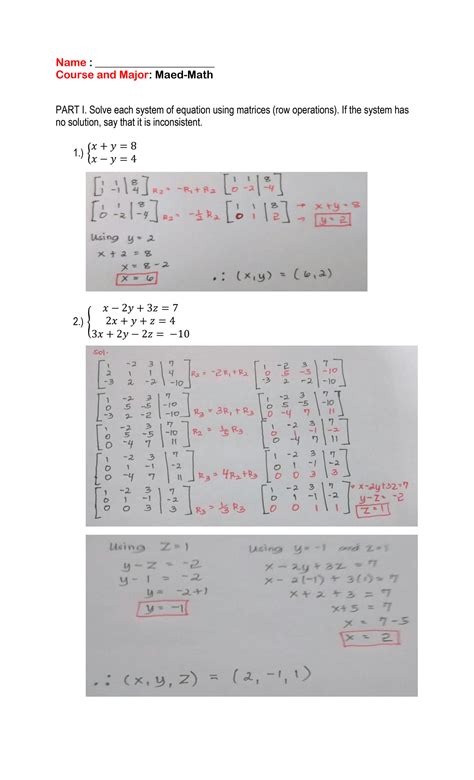 Name : ____________________
Course and Major: Maed-Math
PART I. Solve each system of equation using matrices (row operations). If the system has
no solution, say that it is inconsistent.
1.) {x + y = 8
x − y = 4
[1 1 | 8
1 -1 | 4] R2 = -R1 + R2 [1 1 | 8
0 -2 | -4]
[1 1 | 8
0 -2 | -4] R2 = -1/2 R2 [1 1 | 8
0 1 | 2] → x + y = 8
→ y = 2
Using y = 2
x + 2 = 8
x = 8 - 2
x = 6
∴ (x,y) = (6,2)
2.) {x − 2y + 3z = 7
2x + y + z = 4
3x + 2y − 2z = −10
Sol.
[1 -2 3 | 7
2 1 1 | 4
-3 2 -2 | -10] R2 = -2R1 + R2 [1 -2 3 | 7
0 5 -5 | -10
-3 2 -2 | -10]
[1 -2 3 | 7
0 5 -5 | -10
-3 2 -2 | -10] R3 = 3R1 + R3 [1 -2 3 | 7
0 5 -5 | -10
0 -4 7 | 11]
[1 -2 3 | 7
0 5 -5 | -10
0 -4 7 | 11] R2 = 1/5 R2 [1 -2 3 | 7
0 1 -1 | -2
0 -4 7 | 11]
[1 -2 3 | 7
0 1 -1 | -2
0 -4 7 | 11] R3 = 4R2 + R3 [1 -2 3 | 7
0 1 -1 | -2
0 0 3 | 3]
[1 -2 3 | 7
0 1 -1 | -2
0 0 3 | 3] R3 = 1/3 R3 [1 -2 3 | 7
0 1 -1 | -2
0 0 1 | 1] x - 2y + 3z = 7
y - z = -2
z = 1
Using z = 1
y - z = -2
y - 1 = -2
y = -2 + 1
y = -1
Using y = -1 and z = 1
x - 2y + 3z = 7
x - 2(-1) + 3(1) = 7
x + 2 + 3 = 7
x + 5 = 7
x = 7 - 5
x = 2
∴ (x, y, z) = (2, -1, 1)